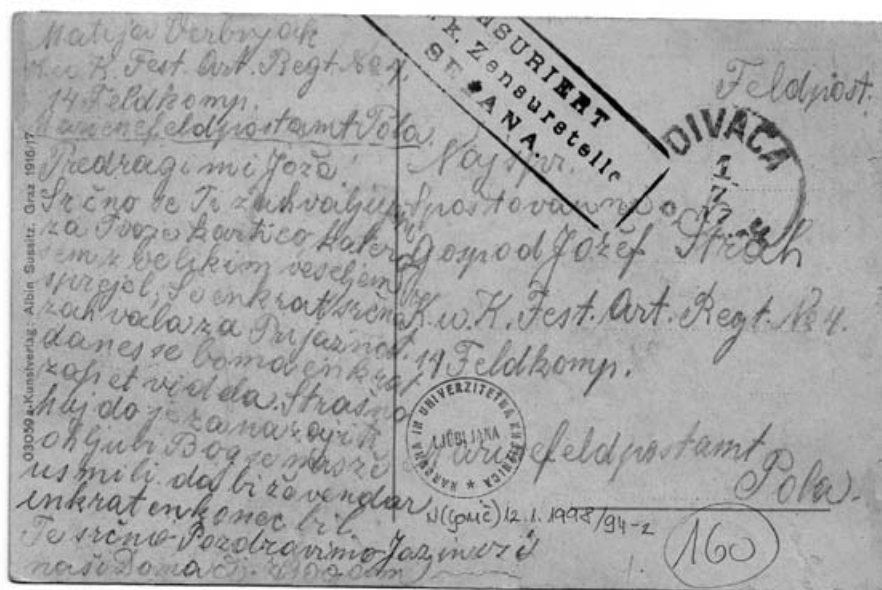 Matija Verbnjak
K. u. K. Fest. Art. Regt. No 4.
14 Feldkomp.
Marinefeldpostamt Pola.
Predragi mi Joža!
Srčno se Ti zahvaljujem
za Tvojo kartico katero
sem z velikim veseljem
sprejel, še enkrat srčna
zahvala za Prijaznost
danes se boma enkrat
zopet vidla. Strašno
hujdo je za
oh ljubi Bog se
usmili da bi že vendar
enkrat en konec bil.
Te srčno Pozdravimo Jaz in
naši Doma
03059 a-Kunstverlag: Albin Sussitz, Graz 1916/17
ZENSURIERT
k. k. Zensurstelle
SEŽANA.
Feldpost.
DIVAČA
1
7
17
Naj spr.
Spostovanni
Gospod Jožef
K. u. K. Fest. Art. Regt. No 4.
14 Feldkomp.
Marinefeldpostamt
Pola.
NARODNA IN UNIVERZITETNA KNJIŽNICA
LJUBLJANA
12. 1. 1998/94-2
160